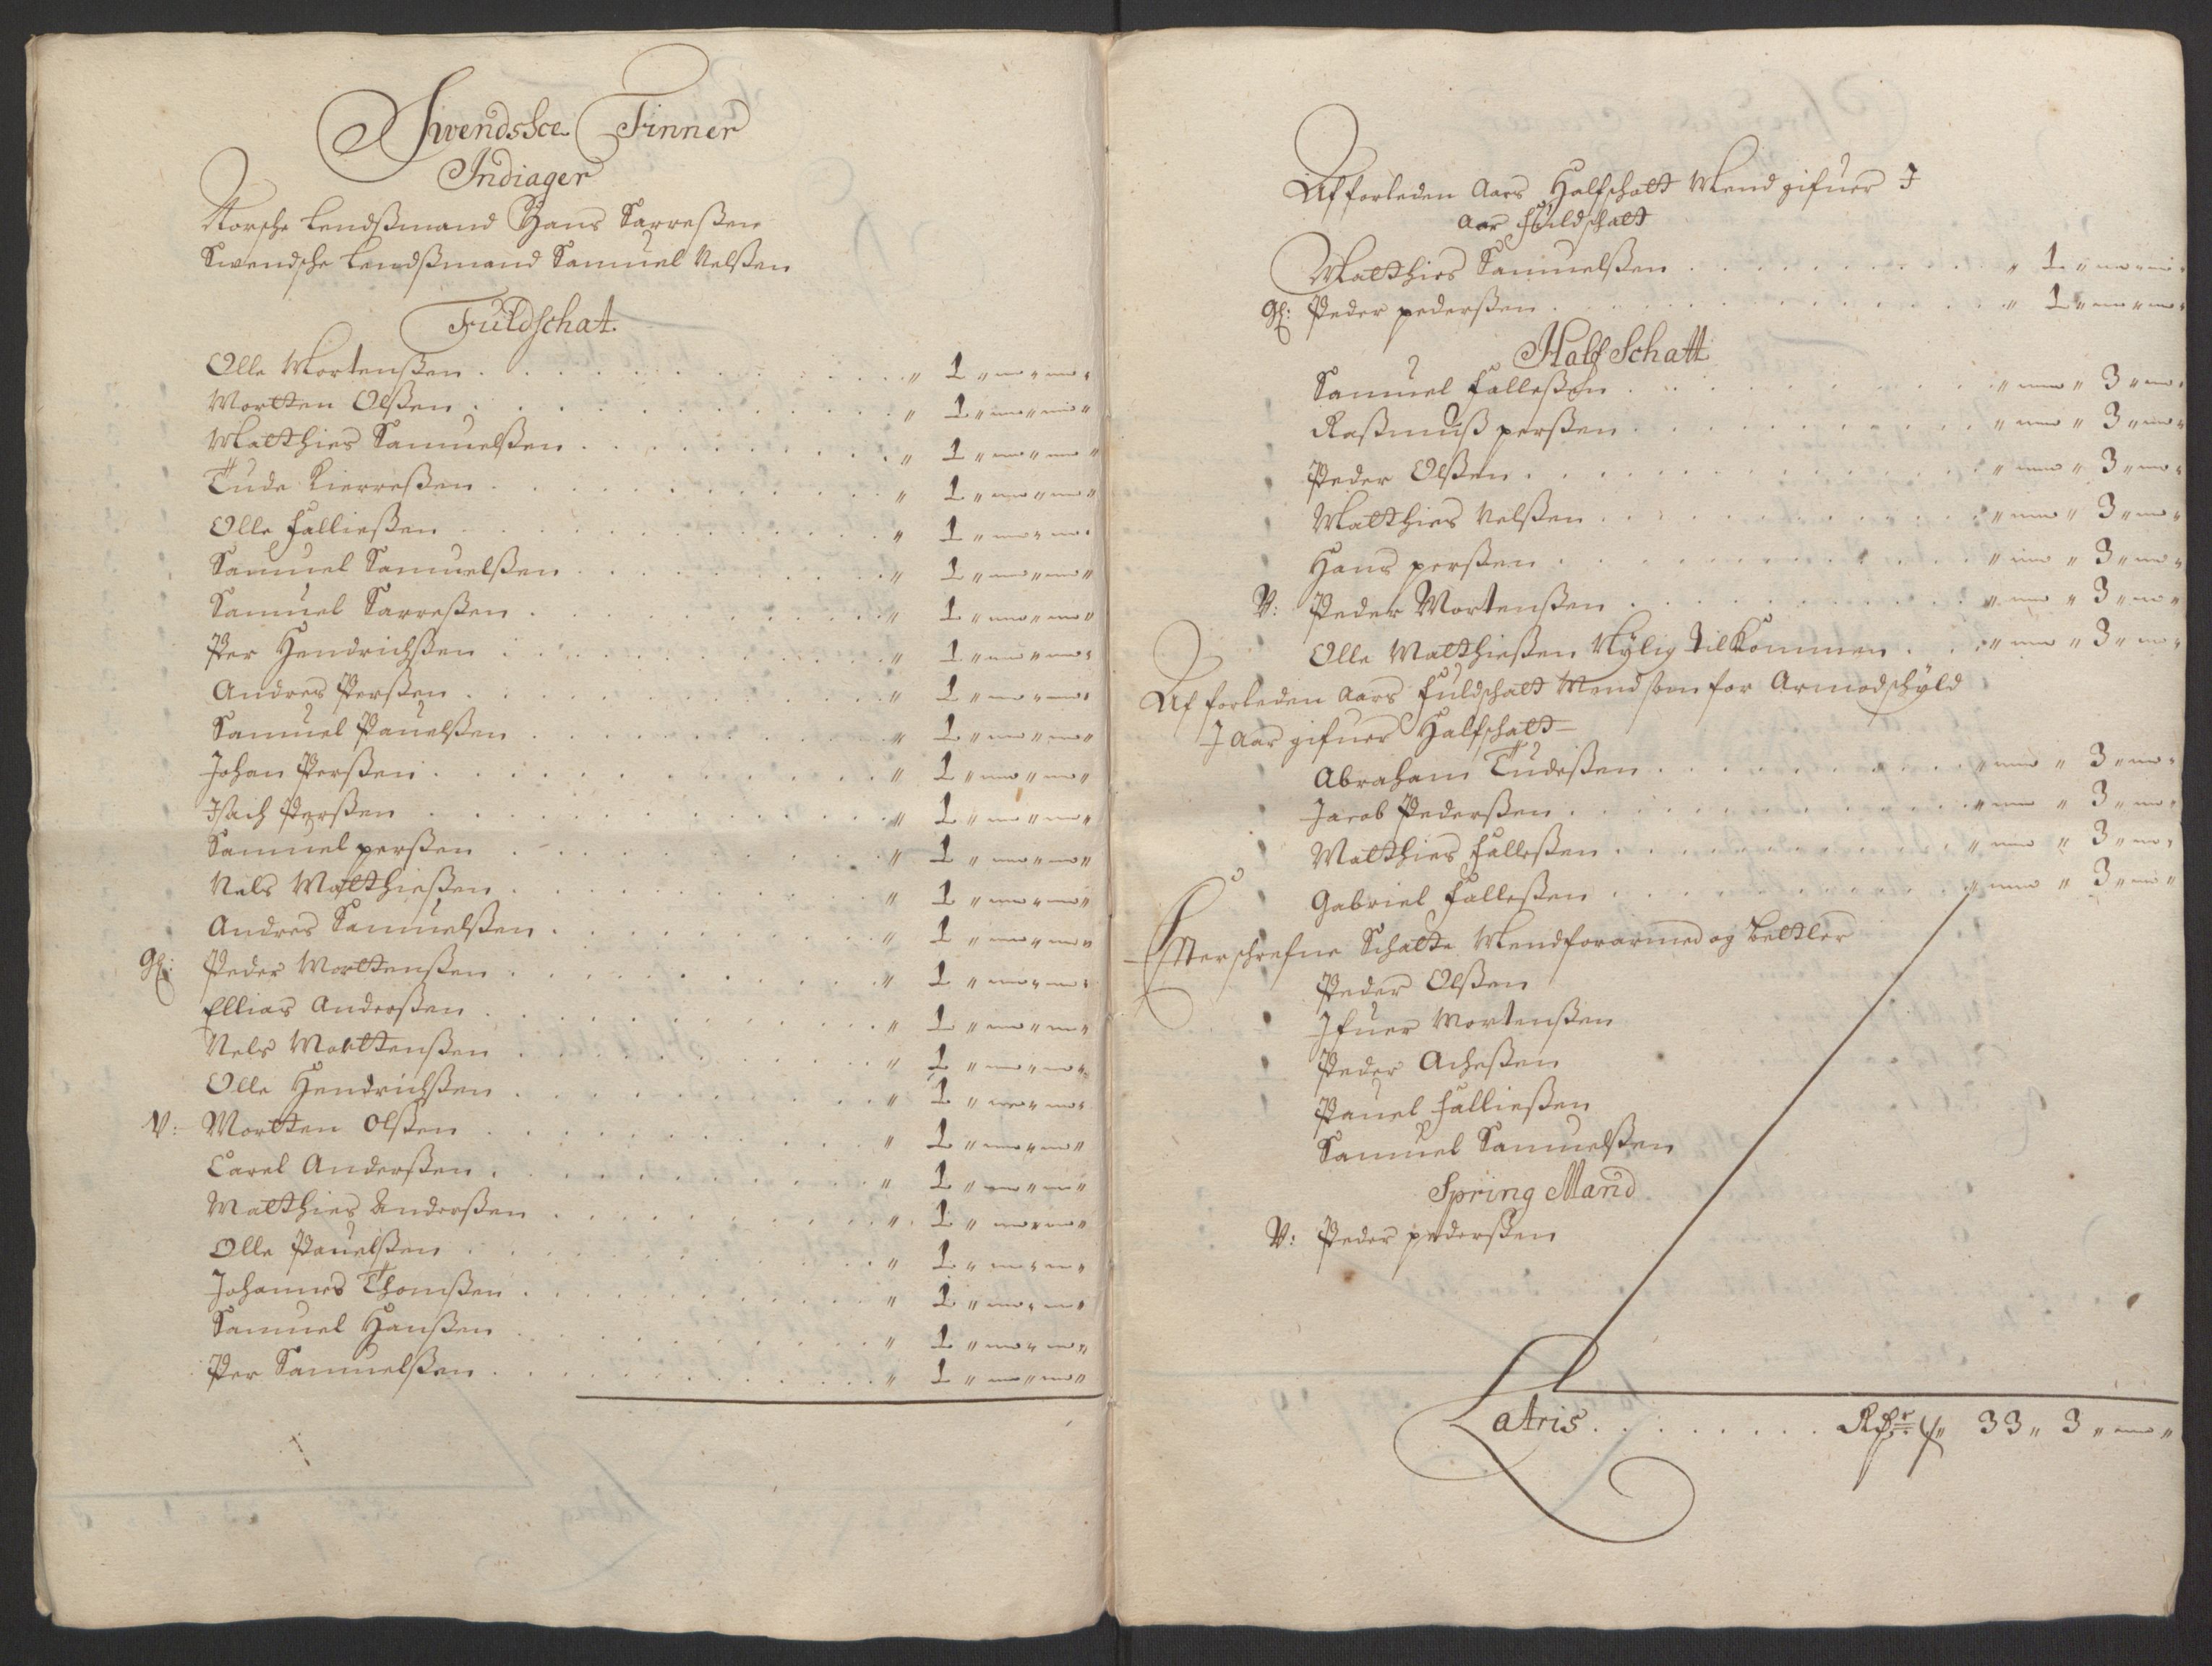 Swendsce Finner
Indiager
Norsche Lendsmand Hans Sarreßen
Swendsche Lendsmand Samuel Nelßen
Fuldschat.
Olle Mortenßen . . . " 1 " — " — "
Mortten Olßen . . . " 1 " — " — "
Matthies Samuelßen . . . " 1 " — " — "
Tude Kierreßen . . . " 1 " — " — "
Olle Falließen . . . " 1 " — " — "
Samuel Samuelßen . . . " 1 " — " — "
Samuel Sarreßen . . . " 1 " — " — "
Per Hendrichßen . . . " 1 " — " — "
Andres Perßen . . . " 1 " — " — "
Samuel Pauelßen . . . " 1 " — " — "
Johan Perßen . . . " 1 " — " — "
Isach Perßen . . . " 1 " — " — "
Samuel perßen . . . " 1 " — " — "
Nels Matthießen . . . " 1 " — " — "
Andres Samuelßen . . . " 1 " — " — "
Gl: Peder Morttenßen . . . " 1 " — " — "
Ellias Anderßen . . . " 1 " — " — "
Nels Morttenßen . . . " 1 " — " — "
Olle Hendrichßen . . . " 1 " — " — "
V: Mortten Olßen . . . " 1 " — " — "
Carel Anderßen . . . " 1 " — " — "
Matthies Anderßen . . . " 1 " — " — "
Olle Pauelßen . . . " 1 " — " — "
Johannes Thomßen . . . " 1 " — " — "
Samuel Hanßen . . . " 1 " — " — "
Per Samuelßen . . . " 1 " — " — "
Af forleden Aars Halfschatt Mend gifuer I
Aar Fuldschatt
Matthies Samuelßen . . . " 1 " — " — "
Gl: Peder pederßen . . . " 1 " — " — "
Half Schatt
Samuel Falleßen . . . " — " 3 " — "
Raßmuß perßen . . . " — " 3 " — "
Peder Olßen . . . " — " 3 " — "
Matthies Nelßen . . . " — " 3 " — "
Hans perßen . . . " — " 3 " — "
V: Peder Mortenßen . . . " — " 3 " — "
Olle Matthießen Nylig tilkommen . . . " — " 3 " — "
Af forleden Aars Fuldschatt Mend som for Armod schyld
I Aar gifuer Halfschatt
Abraham Tudeßen . . . " — " 3 " — "
Jacob Pederßen . . . " — " 3 " — "
Matthies Falleßen . . . " — " 3 " — "
Gabriel Falleßen . . . " — " 3 " — "
Efterschrefne Schatte Mend forarmed og Betler
Peder Olßen
Ifuer Mortenßen
Peder Acheßen
Pauel Falließen
Samuel Samuelßen
Spring Mand
V: Peder pederßen
Latris . . . 33 " 3 " — "